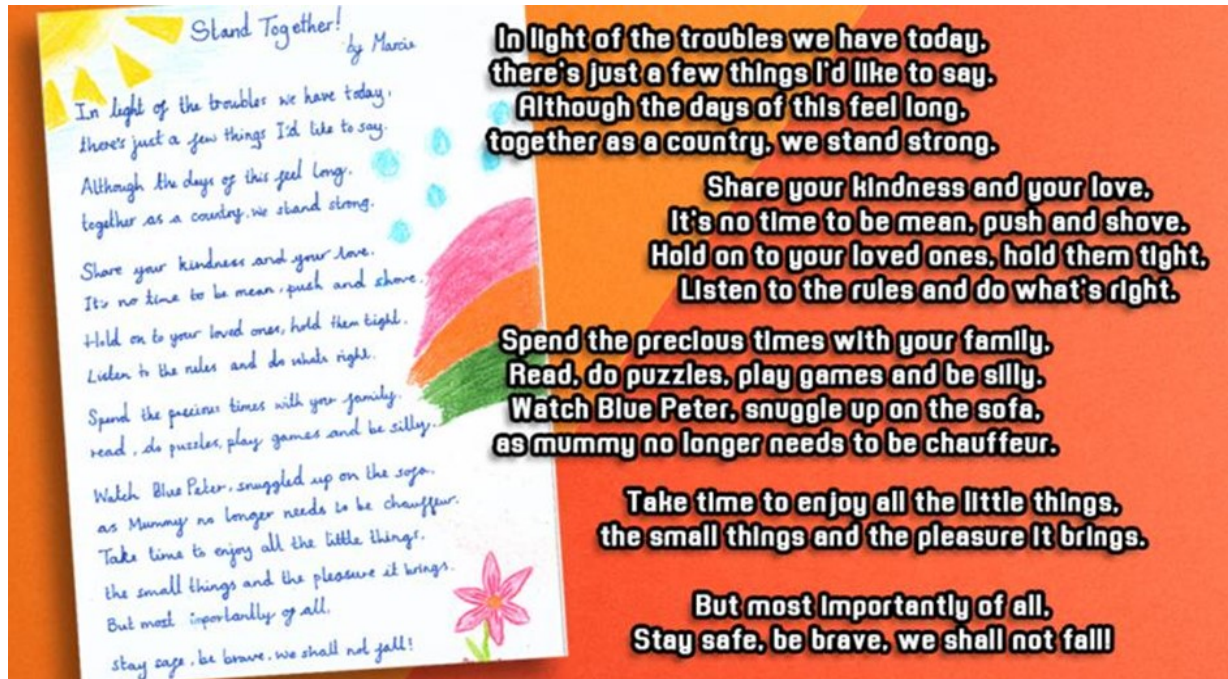 Stand Together!
by Marcie
In light of the troubles we have today,
there's just a few things I'd like to say.
Although the days of this feel long,
together as a country, we stand strong.
Share your kindness and your love.
It's no time to be mean, push and shove.
Hold on to your loved ones, hold them tight.
Listen to the rules and do whats right.
Spend the precious times with your family.
read, do puzzles, play games and be silly.
Watch Blue Peter, snuggled up on the sofa.
as Mummy no longer needs to be chauffeur.
Take time to enjoy all the little things,
the small things and the pleasure it brings.
But most importantly of all,
stay safe, be brave, we shall not fall!
In light of the troubles we have today,
there's just a few things I'd like to say.
Although the days of this feel long,
together as a country, we stand strong.
Share your kindness and your love,
It's no time to be mean, push and shove.
Hold on to your loved ones, hold them tight,
Listen to the rules and do what's right.
Spend the precious times with your family,
Read, do puzzles, play games and be silly.
Watch Blue Peter, snuggle up on the sofa,
as mummy no longer needs to be chauffeur.
Take time to enjoy all the little things,
the small things and the pleasure it brings.
But most importantly of all,
Stay safe, be brave, we shall not fall!